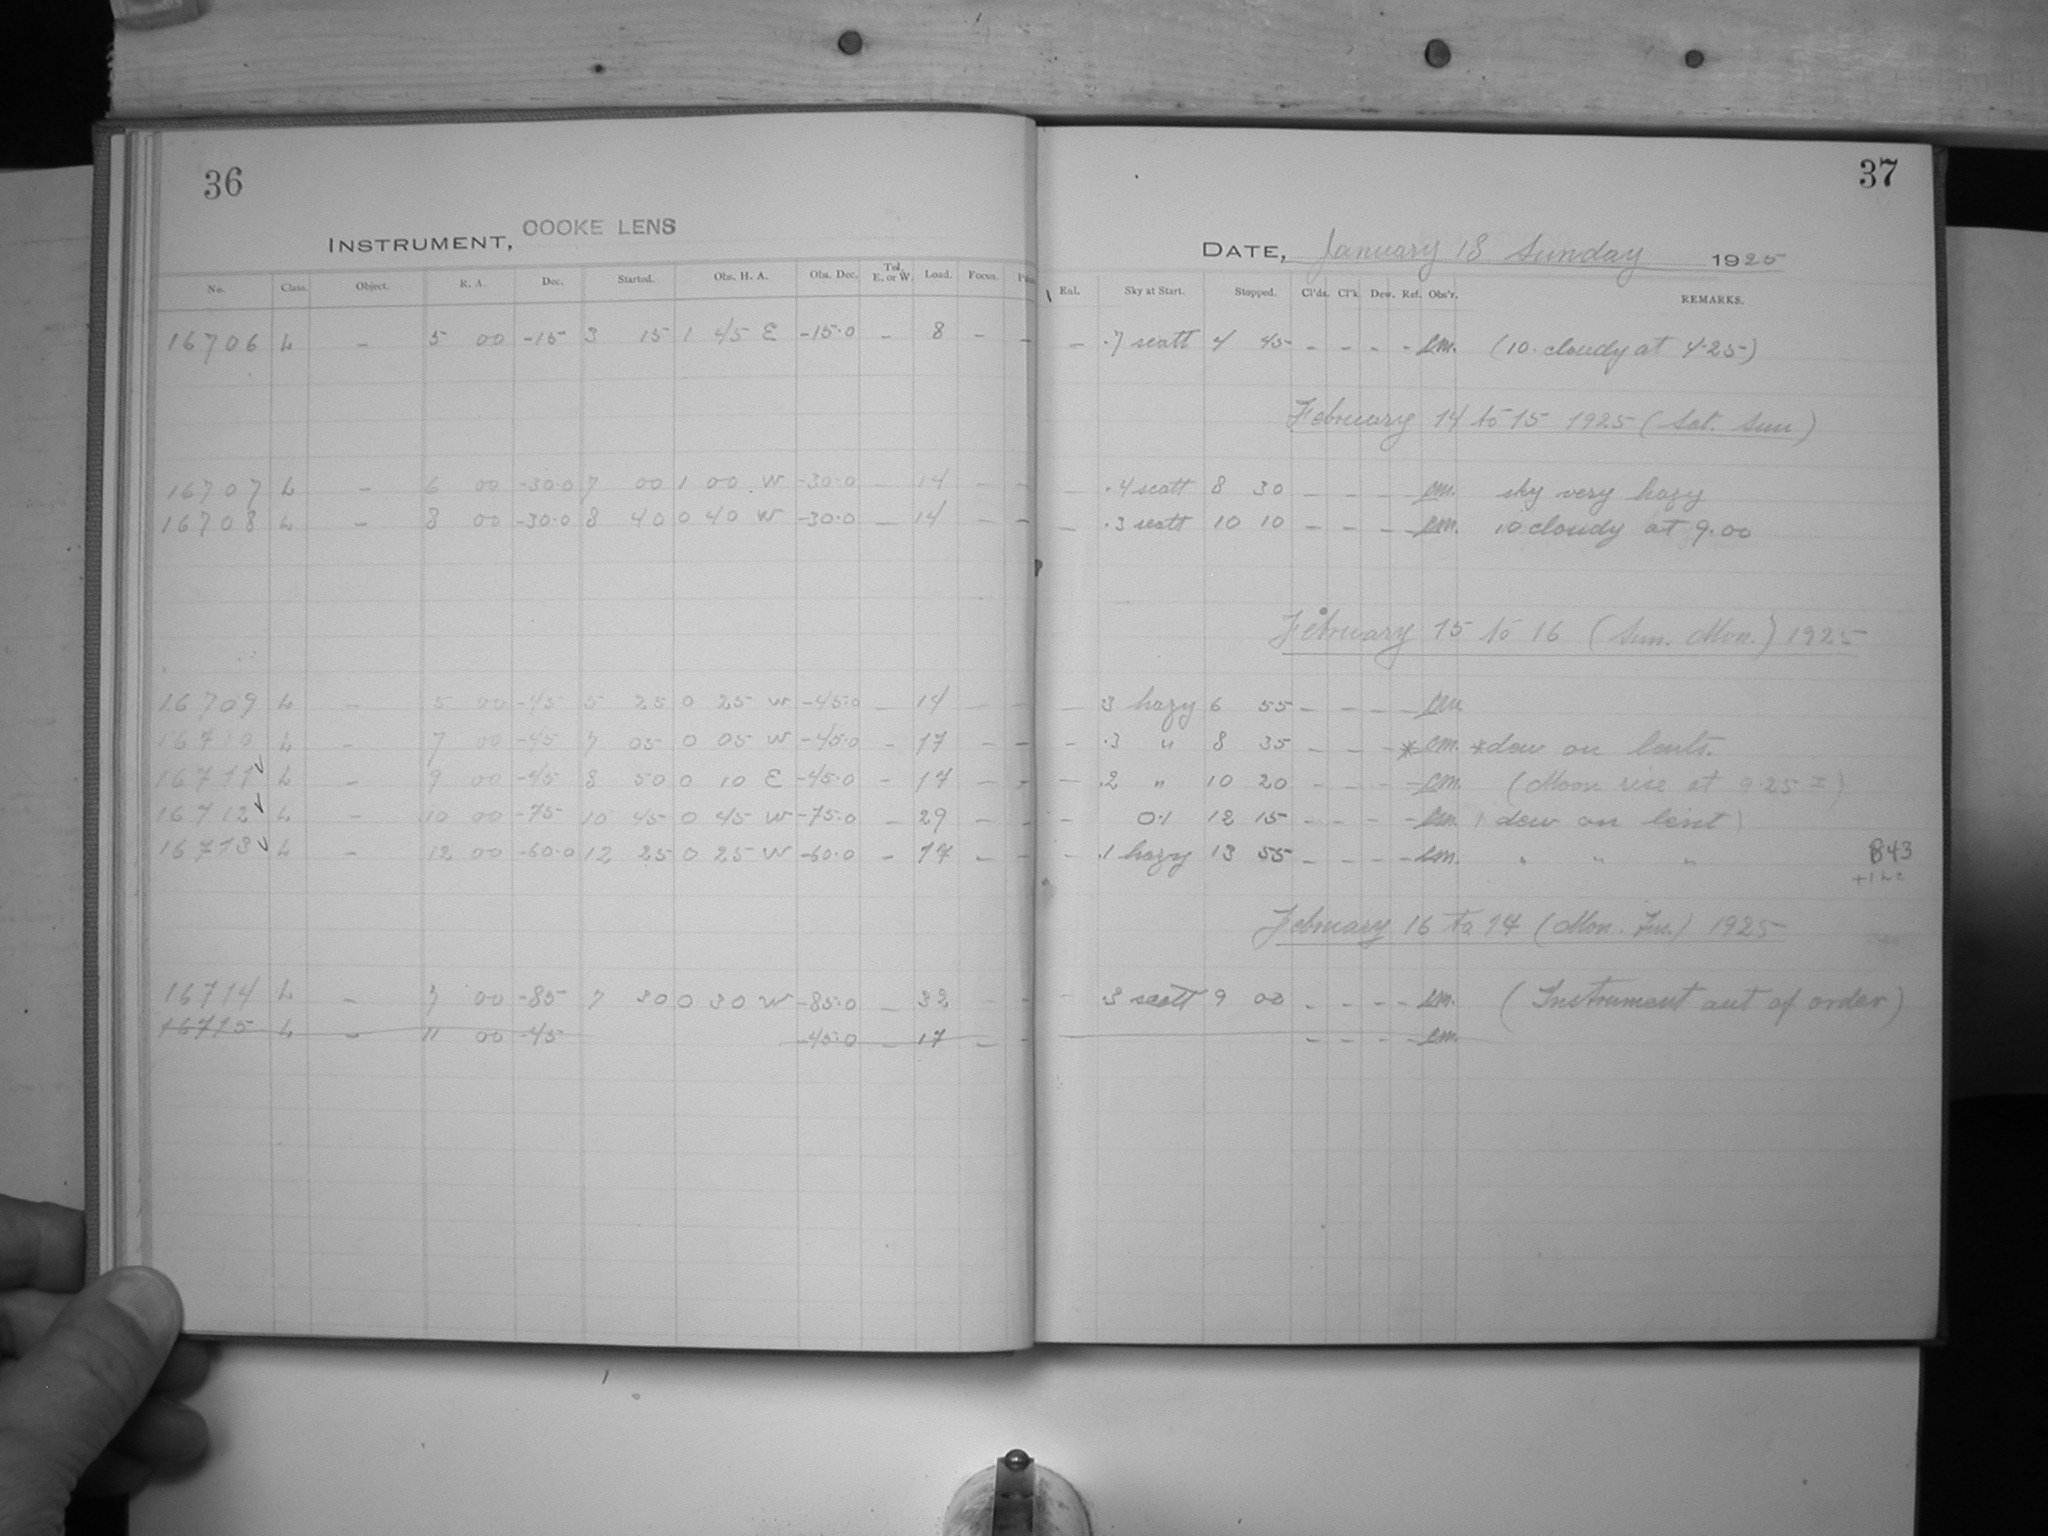 36
INSTRUMENT, COOKE LENS
No. Class. Object. R. A. Dec. Started. Obs. H. A. Obs. Dec. Tel. E. or W. Load. Focus.
16706 L – 5 00 -15 3 15 1 45 E -15.0 – 8 – –
16707 L – 6 00 -30.0 7 00 1 00 W -30.0 – 14 – –
16708 L – 8 00 -30.0 8 40 0 40 W -30.0 – 14 – –
16709 L – 5 00 -45 5 25 0 25 W -45.0 – 14 – –
16710 L – 7 00 -45 7 05 0 05 W -45.0 – 17 – –
16711 L – 9 00 -45 8 50 0 10 E -45.0 – 17 – –
16712 L – 10 00 -75 10 45 0 45 W -75.0 – 29 – –
16713 L – 12 00 -60.0 12 25 0 25 W -60.0 – 17 – –
16714 L – 7 00 -85 7 30 0 30 W -85.0 – 32 – –
16715 L – 11 00 -45 -45.0 – 17 – –
37
DATE, January 18 Sunday 1925
Enl. Sky at Start. Stopped. Cl'ds. Cl'k. Dew. Ref. Obs'r. REMARKS.
– .7 scatt 4 45 – – – – em. (10. cloudy at 4.25)
February 14 to 15 1925 (Sat. Sun)
– .4 scatt 8 30 – – – em. sky very hazy
– .3 scatt 10 10 – – – – em. 10 cloudy at 9.00
February 15 to 16 (Sun. Mon.) 1925
– 3 hazy 6 55 – – – – em.
– .3 " 8 35 – – – * em. *dew on lents.
– .2 " 10 20 – – – – em. (Moon rise at 9.25 ±)
– 0.1 12 15 – – – – em. (dew on lent)
– .1 hazy 13 55 – – – – em. " " " 843
February 16 to 17 (Mon. Tue.) 1925
– .3 scatt 9 00 – – – – em. (Instrument out of order)
– – – – em.